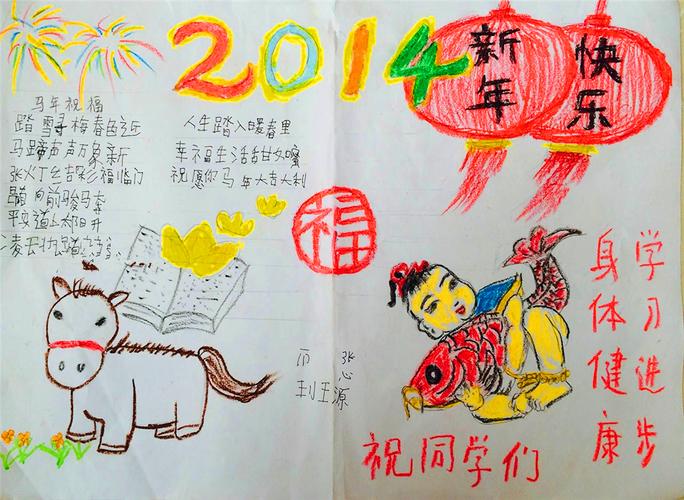 2014
新年
快乐
马年祝福
踏雪寻梅春近
马蹄声声万象新
张灯结彩福临门
向前骏马奔
平安道上太阳升
凌云壮踏
人生踏入暖春里
幸福生活甜如蜜
祝愿你马年大吉大利
福
学习进步
身体健康
祝同学们